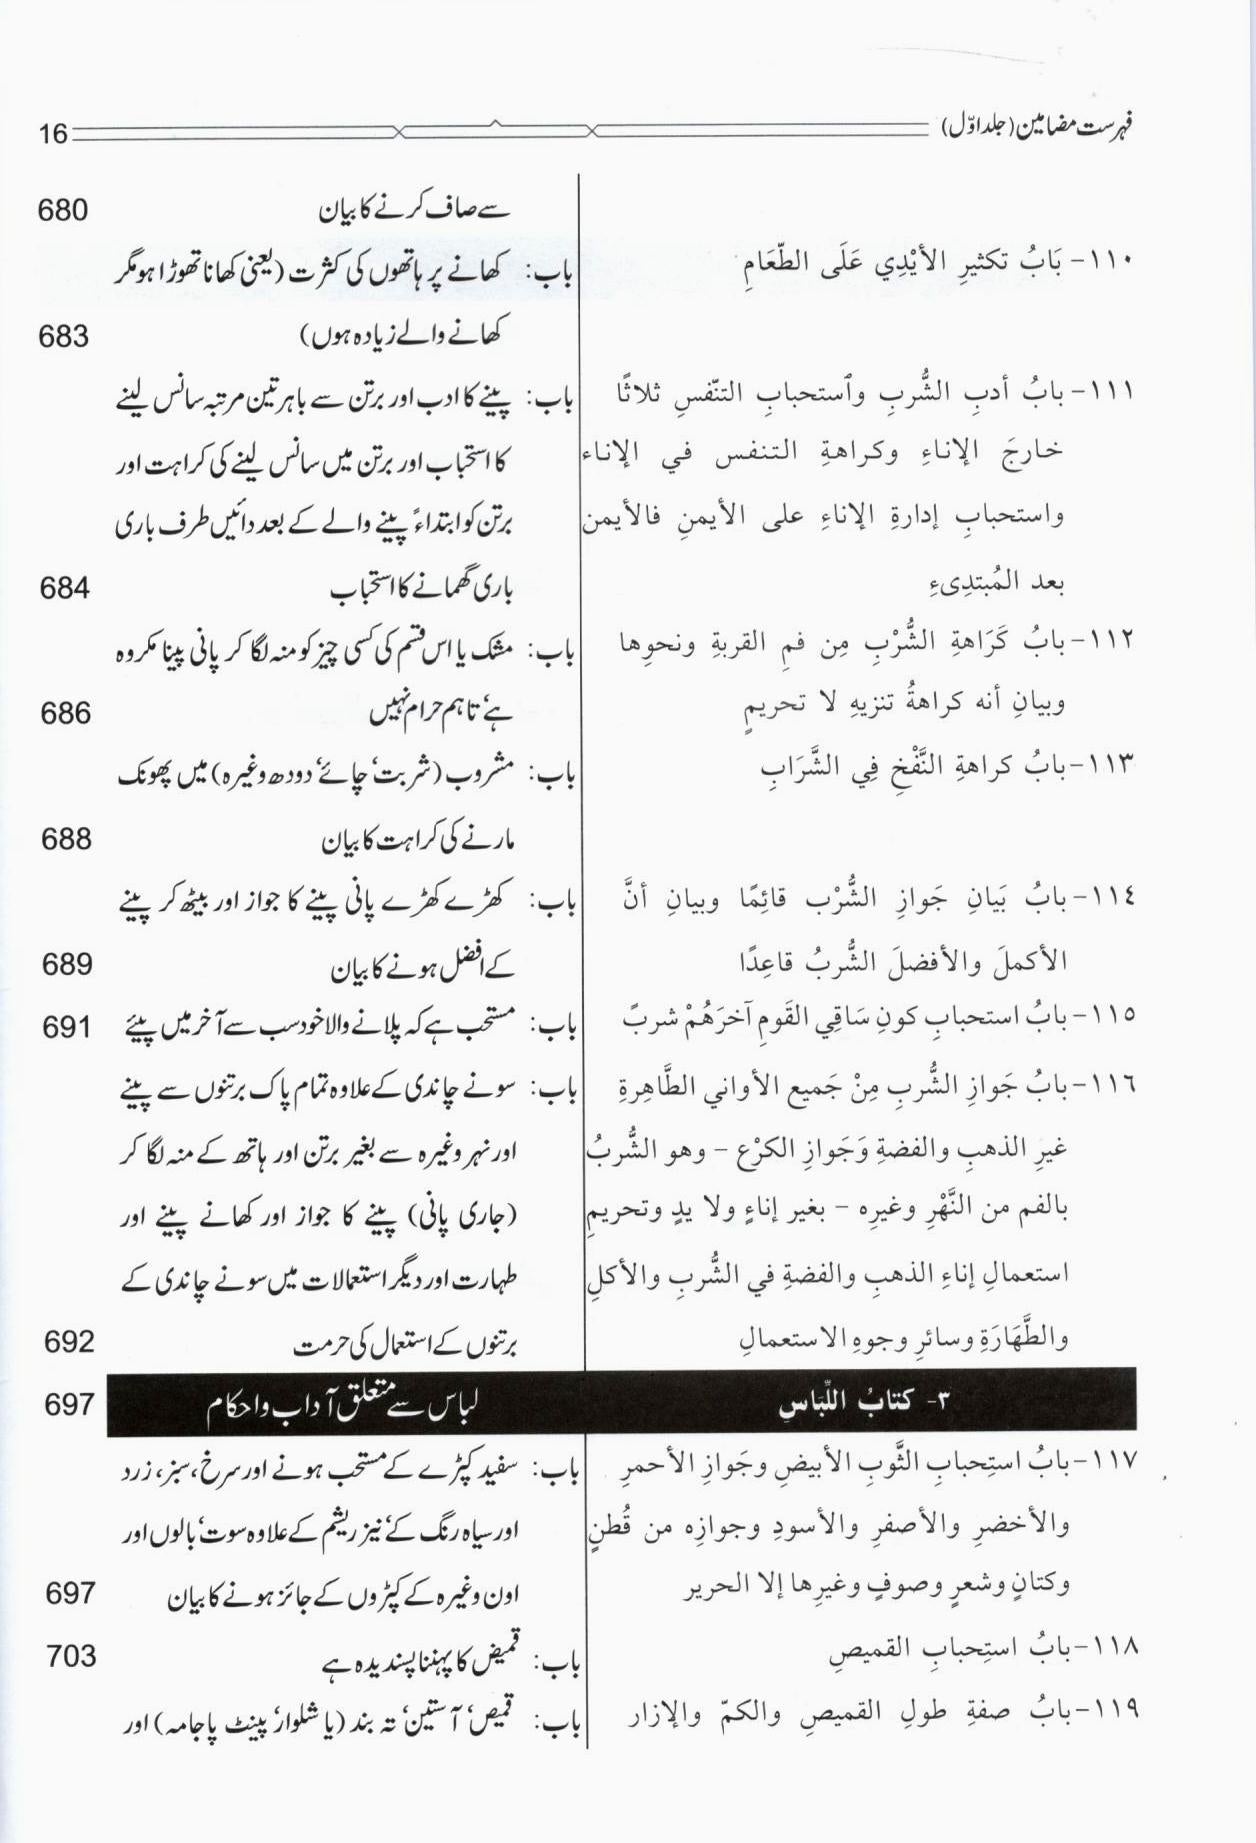 فہرست مضامین (جلد اوّل) 16
سے صاف کرنے کا بیان 680
١١٠- بَابُ تكثيرِ الأيْدِي عَلَى الطّعَامِ باب: کھانے پر ہاتھوں کی کثرت (یعنی کھانا تھوڑا ہو مگر
کھانے والے زیادہ ہوں) 683
١١١- بابُ أدبِ الشُّربِ وٱستحبابِ التنّفسِ ثلاثًا باب: پینے کا ادب اور برتن سے باہر تین مرتبہ سانس لینے
خارجَ الإناءِ وكراهةِ التنفس في الإناء کا استحباب اور برتن میں سانس لینے کی کراہت اور
واستحبابِ إدارةِ الإناءِ على الأيمنِ فالأيمن برتن کو ابتداءً پینے والے کے بعد دائیں طرف باری
بعد المُبتدِىءِ باری گھمانے کا استحباب 684
١١٢- بابُ كَرَاهةِ الشُّرْبِ مِن فمِ القربةِ ونحوِها باب: مشک یا اس قسم کی کسی چیز کو منہ لگا کر پانی پینا مکروہ
وبيانِ أنه كراهةُ تنزيهِ لا تحريمٍ ہے‘ تاہم حرام نہیں 686
١١٣- بابُ كراهةِ النَّفْخِ فِي الشَّرَابِ باب: مشروب (شربت‘ چائے‘ دودھ وغیرہ) میں پھونک
مارنے کی کراہت کا بیان 688
١١٤- بابُ بَيَانِ جَوازِ الشُّرْب قائِمًا وبيانِ أنَّ باب: کھڑے کھڑے پانی پینے کا جواز اور بیٹھ کر پینے
الأكملَ والأفضلَ الشُّربُ قاعِدًا کے افضل ہونے کا بیان 689
١١٥- بابُ استحبابِ كونِ سَاقِي القَومِ آخرَهُمْ شربً باب: مستحب ہے کہ پلانے والا خود سب سے آخر میں پیئے 691
١١٦- بابُ جَوازِ الشُّربِ مِنْ جَميع الأواني الطَّاهِرةِ باب: سونے چاندی کے علاوہ تمام پاک برتنوں سے پینے
غيرِ الذهبِ والفضةِ وَجَوازِ الكرْع – وهو الشُّربُ اور نہر وغیرہ سے بغیر برتن اور ہاتھ کے منہ لگا کر
بالفم من النَّهْرِ وغيرِه – بغير إناءٍ ولا يدٍ وتحريمِ (جاری پانی) پینے کا جواز اور کھانے پینے اور
استعمالِ إناءِ الذهبِ والفضةِ في الشُّربِ والأكلِ طہارت اور دیگر استعمالات میں سونے چاندی کے
والطَّهَارَةِ وسائرِ وجوهِ الاستعمالِ برتنوں کے استعمال کی حرمت 692
٣- كتابُ اللِّبَاسِ لباس سے متعلق آداب و احکام 697
١١٧- بابُ استِحبابِ الثَّوبِ الأبيضِ وجَوازِ الأحمرِ باب: سفید کپڑے کے مستحب ہونے اور سرخ، سبز، زرد
والأخضرِ والأصفرِ والأسودِ وجوازِه من قُطنٍ اور سیاہ رنگ کے‘ نیز ریشم کے علاوہ سوت‘ بالوں اور
وكتانٍ وشعرٍ وصوفٍ وغيرِها إلا الحرير اون وغیرہ کے کپڑوں کے جائز ہونے کا بیان 697
١١٨- بابُ استِحبابِ القميصِ باب: قمیض کا پہننا پسندیدہ ہے 703
١١٩- بابُ صفةِ طولِ القميصِ والكمّ والإزار باب: قمیص‘ آستین‘ تہ بند (یا شلوار‘ پینٹ پاجامہ) اور